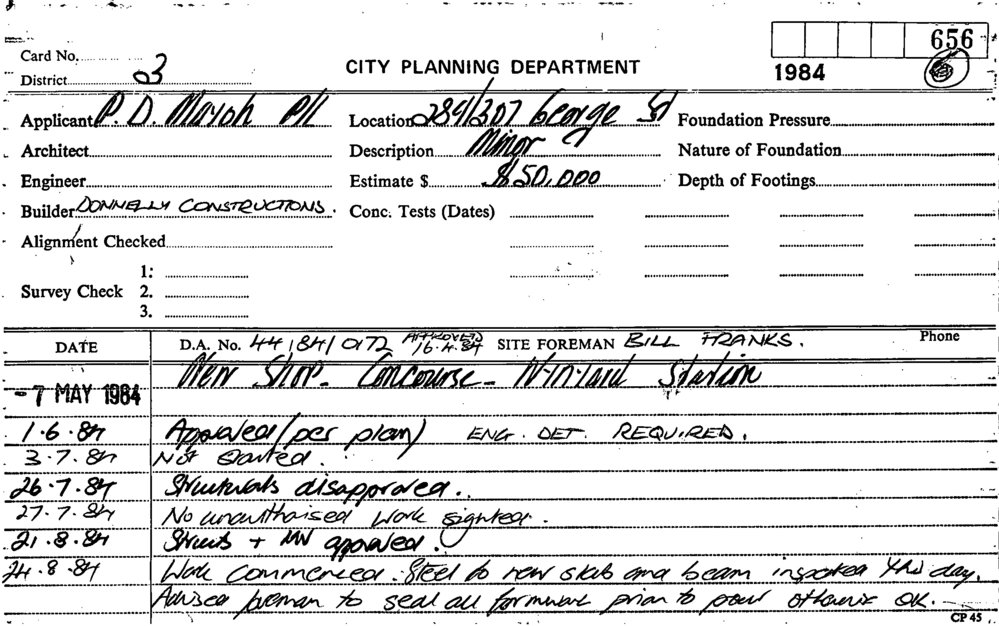 656
Card No.
District 3
CITY PLANNING DEPARTMENT
1984
Applicant P. D. Mayoh P/L
Location 289/307 George St
Foundation Pressure
Architect
Description Minor
Nature of Foundation
Engineer
Estimate $ $50,000
Depth of Footings
Builder DONNELLY CONSTRUCTIONS.
Conc. Tests (Dates)
Alignment Checked
1:
Survey Check 2.
3.
DATE
D.A. No. 44/84/0172 APPROVED 16.4.84 SITE FOREMAN BILL FRANKS. Phone
New Shop - Concourse - Wynyard Station
-7 MAY 1984
1.6.84 Approved (per plan) ENG. DET. REQUIRED.
3.7.84 Not started.
26.7.84 Structurals disapproved.
27.7.84 No unauthorised work sighted.
21.8.84 Structs + MV approved.
24.8.84 Work commenced. Steel to new slab and beam inspected this day.
Advised foreman to seal all formwork prior to pour otherwise OK.
CP 45